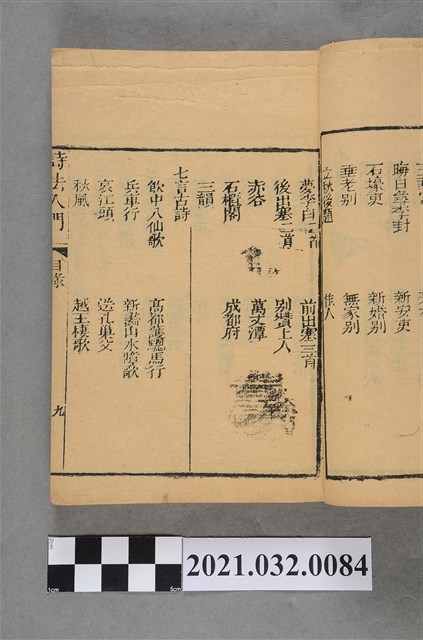 晦日尋崔 封
石壕吏 新安吏
垂老別 新婚別
立秋後題 無家別
佳人
夢李白二首 前出塞三首
後出塞二首 別贊上人
赤谷 萬丈潭
石櫃閣 成都府
三韻
七言古詩
飲中八仙歌 高都護驄馬行
兵車行 新畫山水障歌
哀江頭 送孔巢父
秋風 越王樓歌
詩法入門 目錄 九
2021.032.0084
1cm 5cm